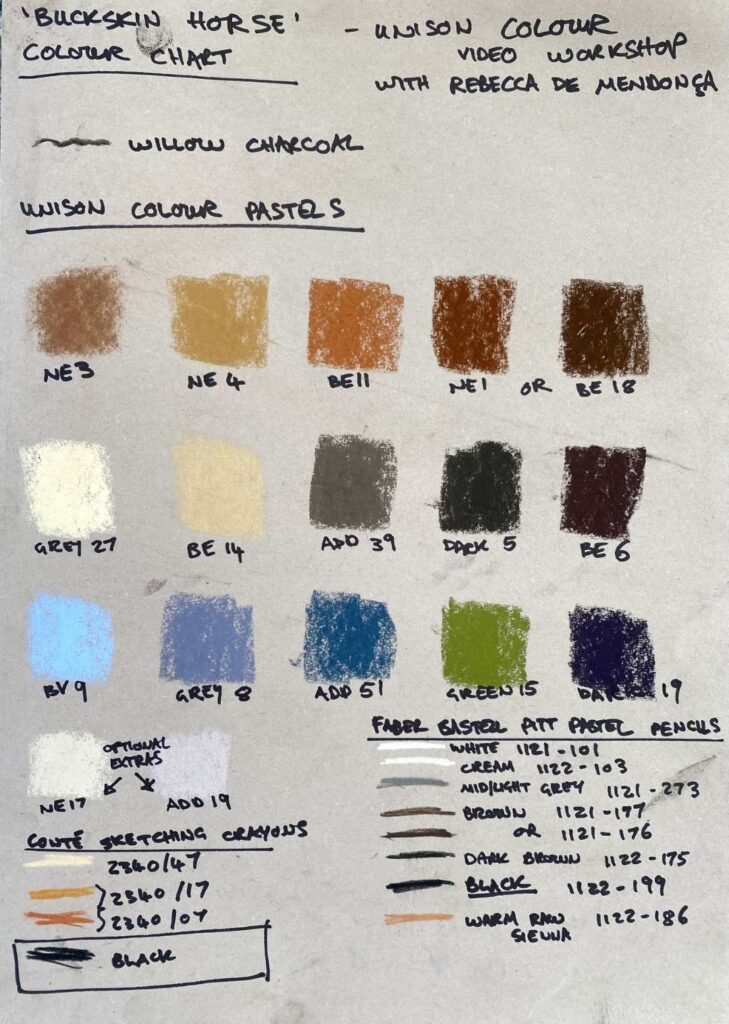 'BUCKSKIN HORSE'
COLOUR CHART
- UNISON COLOUR
VIDEO WORKSHOP
WITH REBECCA DE MENDONÇA
WILLOW CHARCOAL
UNISON COLOUR PASTELS
NE3 NE 4 BE11 NE1 OR BE 18
GREY 27 BE 14 ADD 39 DARK 5 BE 6
BV 9 GREY 8 ADD 51 GREEN 15 DARK 19
OPTIONAL
EXTRAS
NE17 ADD 19
CONTÉ SKETCHING CRAYONS
2340/47
2340/17
2340/07
BLACK
FABER CASTELL PITT PASTEL PENCILS
WHITE 1121-101
CREAM 1122-103
MID/LIGHT GREY 1121-273
BROWN 1121-177
OR 1121-176
DARK BROWN 1122-175
BLACK 1122-199
WARM RAW 1122-186
SIENNA